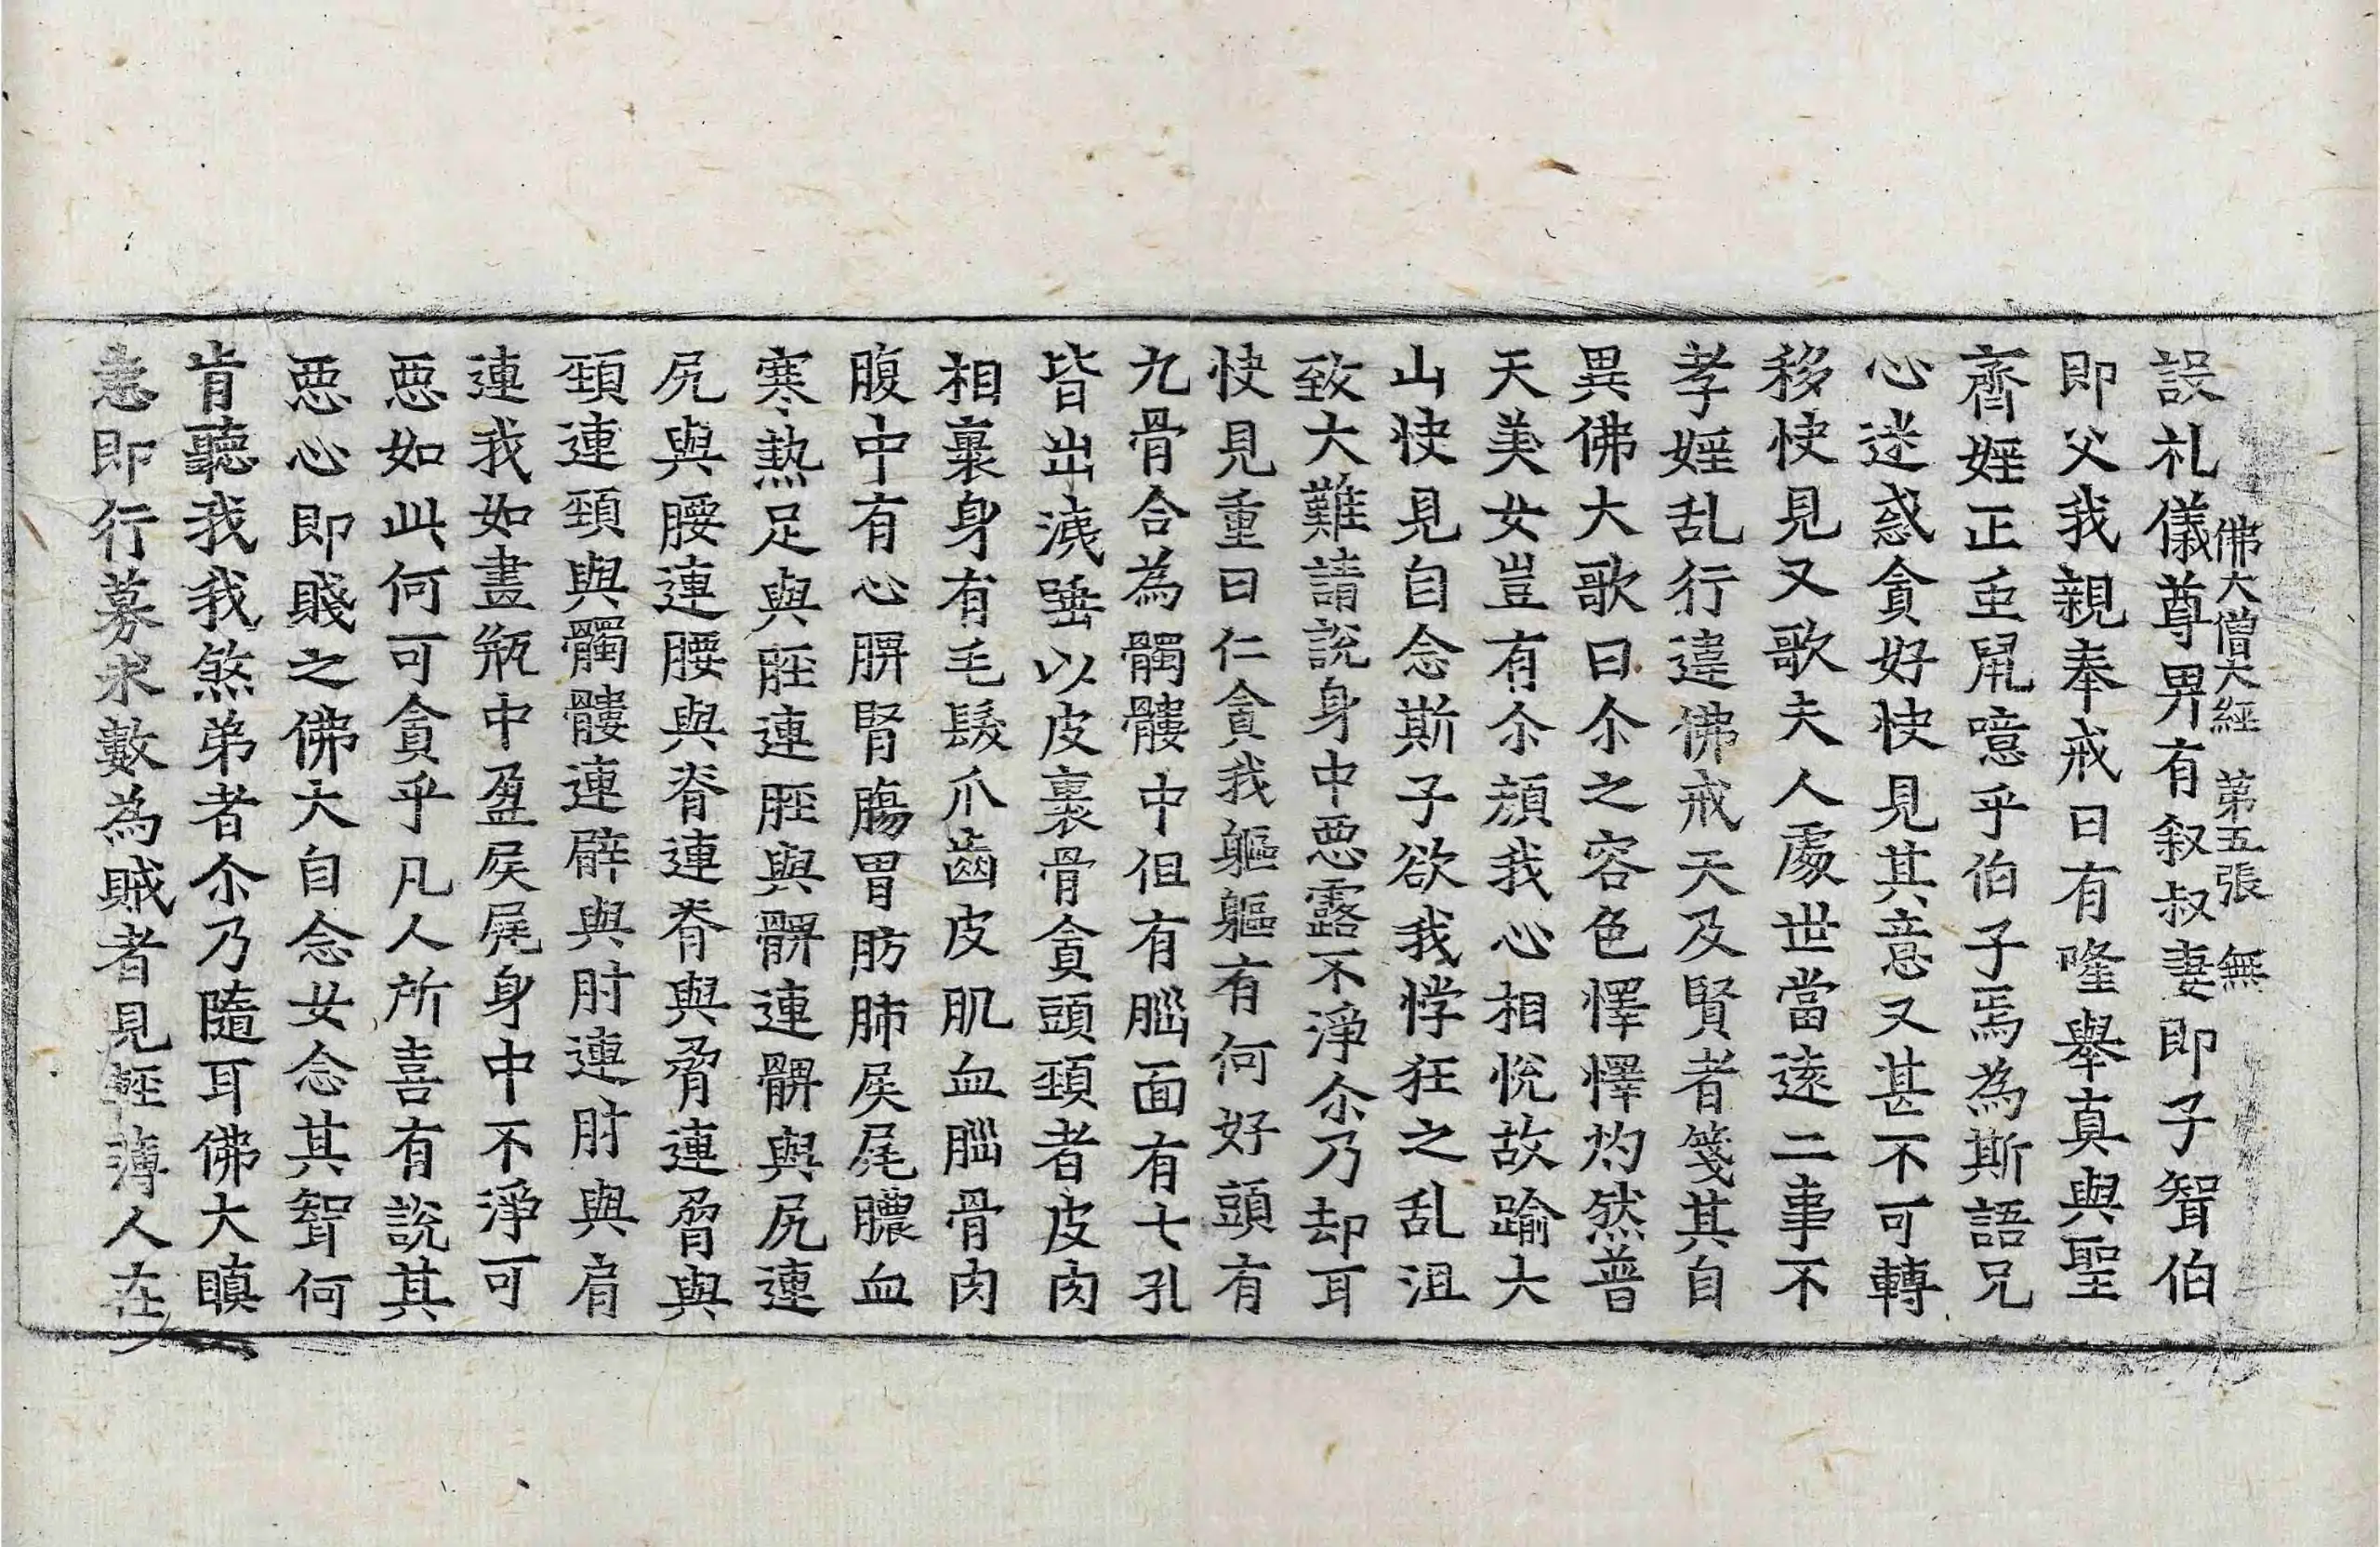 佛大僧大經　第五張　無
設礼儀尊畀有叙叔妻即子聟伯
即父我親奉戒曰有隆舉真與聖
齊婬正重鼠噫乎伯子焉為斯語兄
心迷惑貪好快見其意又甚不可轉
移快見又歌夫人處世當遠二事不
孝婬乱行違佛戒天及賢者箋其自
異佛大歌曰尒之容色懌懌灼然普
天美女豈有尒顔我心相悅故踰大
山快見自念斯子欲我悖狂之乱沮
致大難請說身中惡露不淨尒乃却耳
快見重曰仁貪我軀軀有何好頭有
九骨合為髑髏中但有腦面有七孔
皆出洟唾以皮裹骨貪頭頸者皮肉
相裹身有毛髮爪齒皮肌血腦骨肉
腹中有心脾腎腸胃肪肺屎尾膿血
寒熱足與脛連脛與髀連髀與尻連
尻與腰連腰與脊連脊與脅連脅與
頸連頸與髑髏連臂與肘連肘與肩
連我如畫瓶中盈屎尾身中不淨可
惡如此何可貪乎凡人所喜有說其
惡心即賤之佛大自念女念其聟何
肯聽我我煞弟者尒乃隨耳佛大瞋
恚即行募求數為賊者見輕薄人在